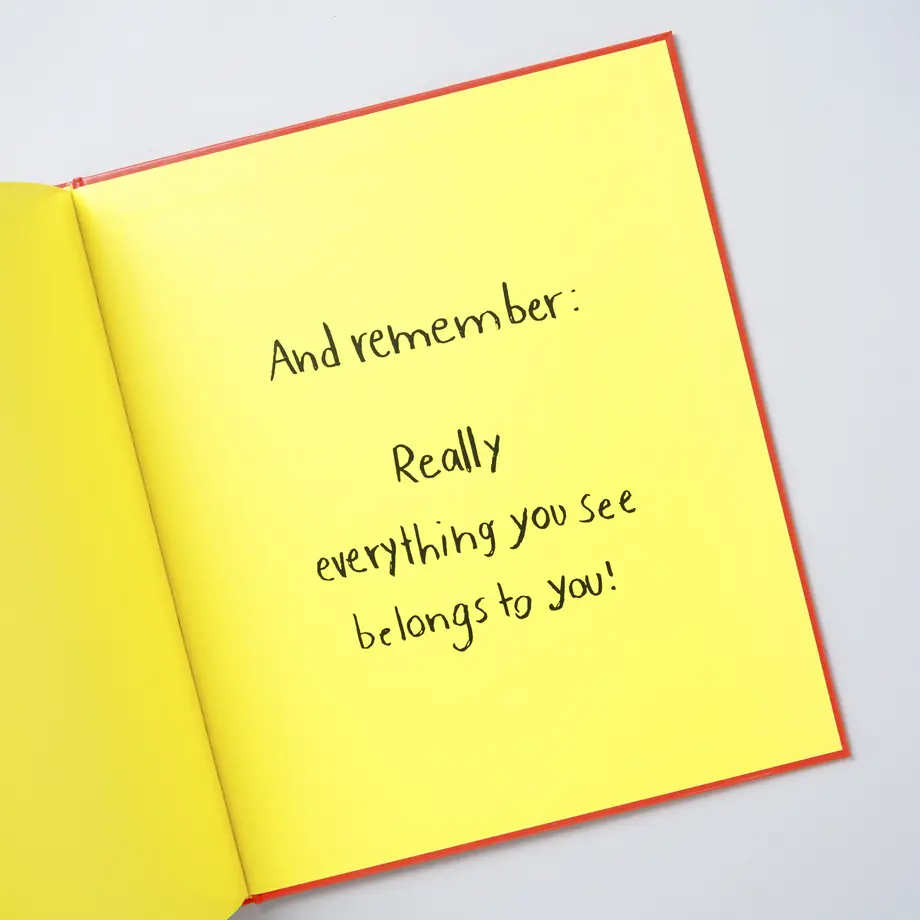 And remember:
Really
everything you see
belongs to you!